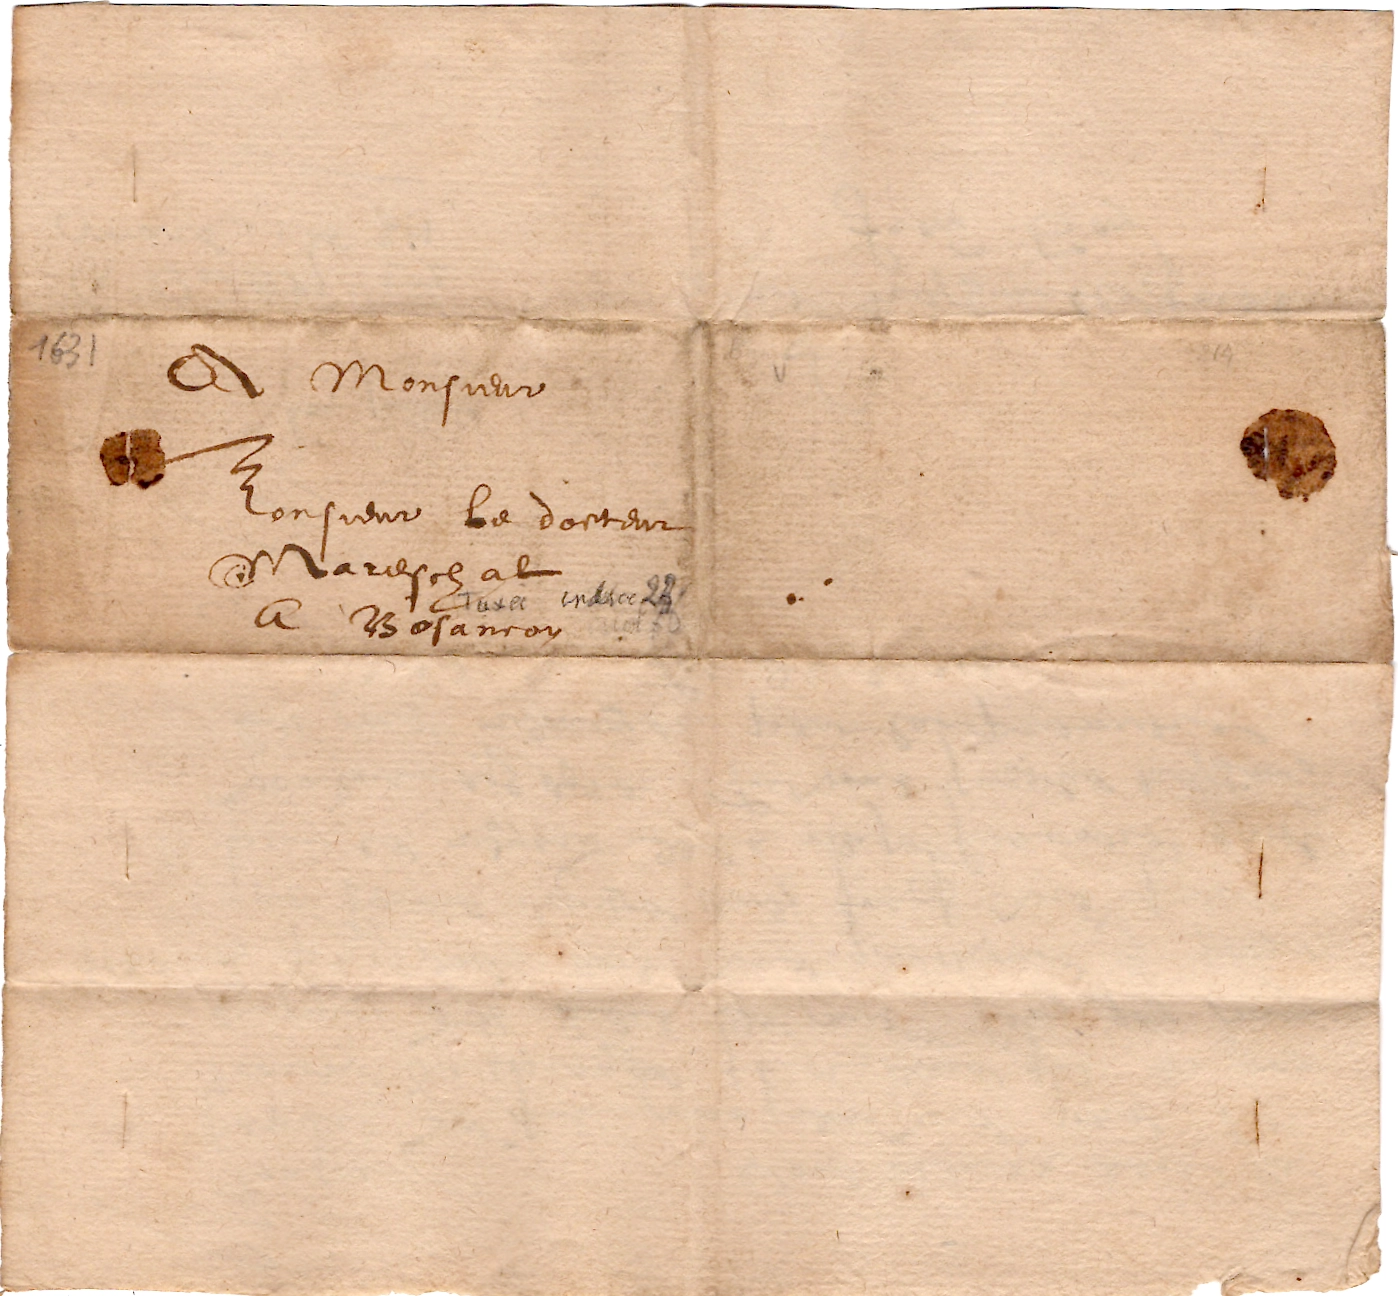 1631
A Monsieur
Monsieur le docteur
Mareschal
A Besancon
Taxée 22